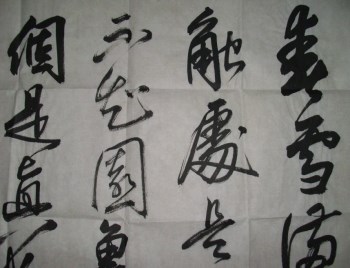 春雪滿
觸處是
不知園裏
個是真